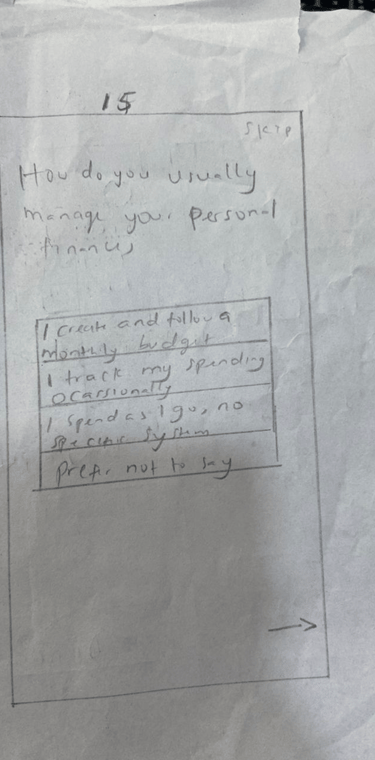 15
Skip
How do you usually
manage your personal
finances
I create and follow a
monthly budget
I track my spending
ocassionally
I spend as I go, no
specific system
Prefer not to say